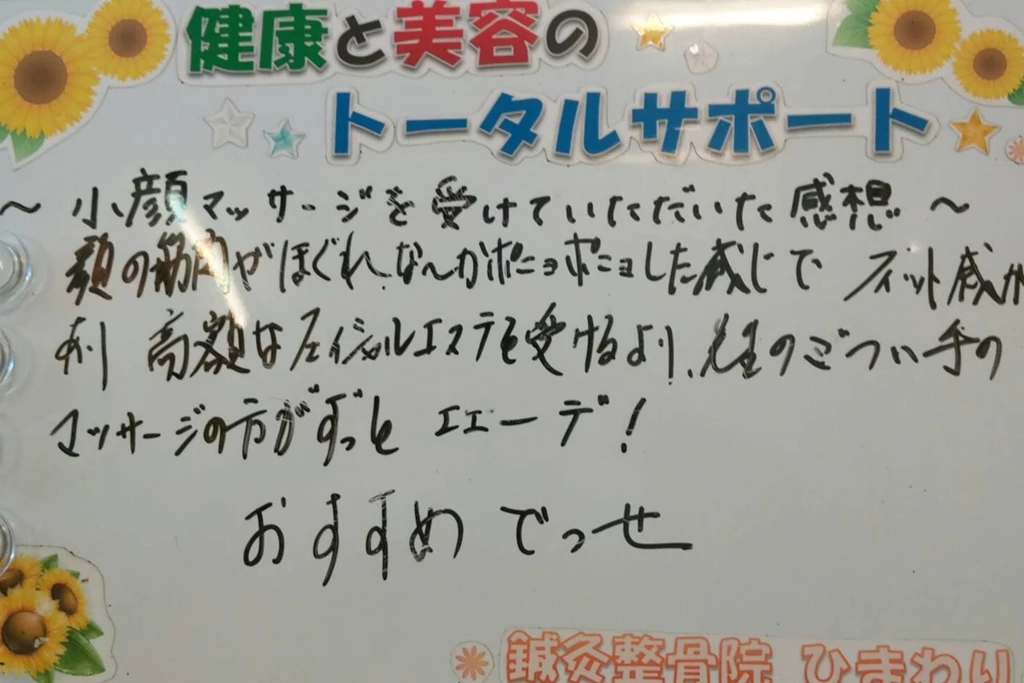 健康と美容の
トータルサポート
～小顔マッサージを受けていただいた感想～
顔の筋肉がほぐれ、な～んかポニョポニョした感じで フィット感が
あり 高額なフェイシャルエステを受けるより、先生のごつい手の
マッサージの方がずっと エエーデ！
おすすめでっせ
鍼灸整骨院 ひまわり